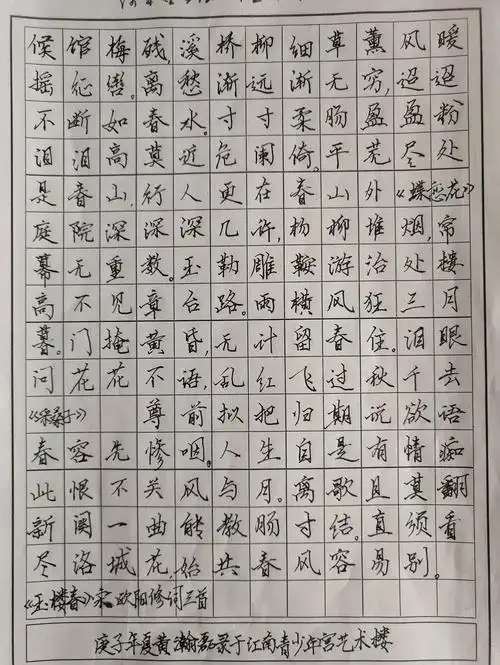 候馆梅残,溪桥柳细草薰风暖
摇征辔。离愁渐远渐无穷,迢迢
不断如春水。寸寸柔肠盈盈粉
泪泪高莫近危阑倚。平芜尽处
是春山,行人更在春山外《蝶恋花》
庭院深深深几许,杨柳堆烟,帘
幕无重数。玉勒雕鞍游冶处楼
高不见章台路。雨横风狂三月
暮。门掩黄昏,无计留春住。泪眼
问花花不语,乱红飞过秋千去
《采桑子》尊前拟把归期说欲语
春容先惨咽。人生自是有情痴
此恨不关风与月。离歌且莫翻
新阕一曲能教肠寸结。直须看
尽洛城花,始共春风容易别。
《玉楼春》宋欧阳修词三首
庚子年夏黄瀚录于江南青少年宫艺术楼